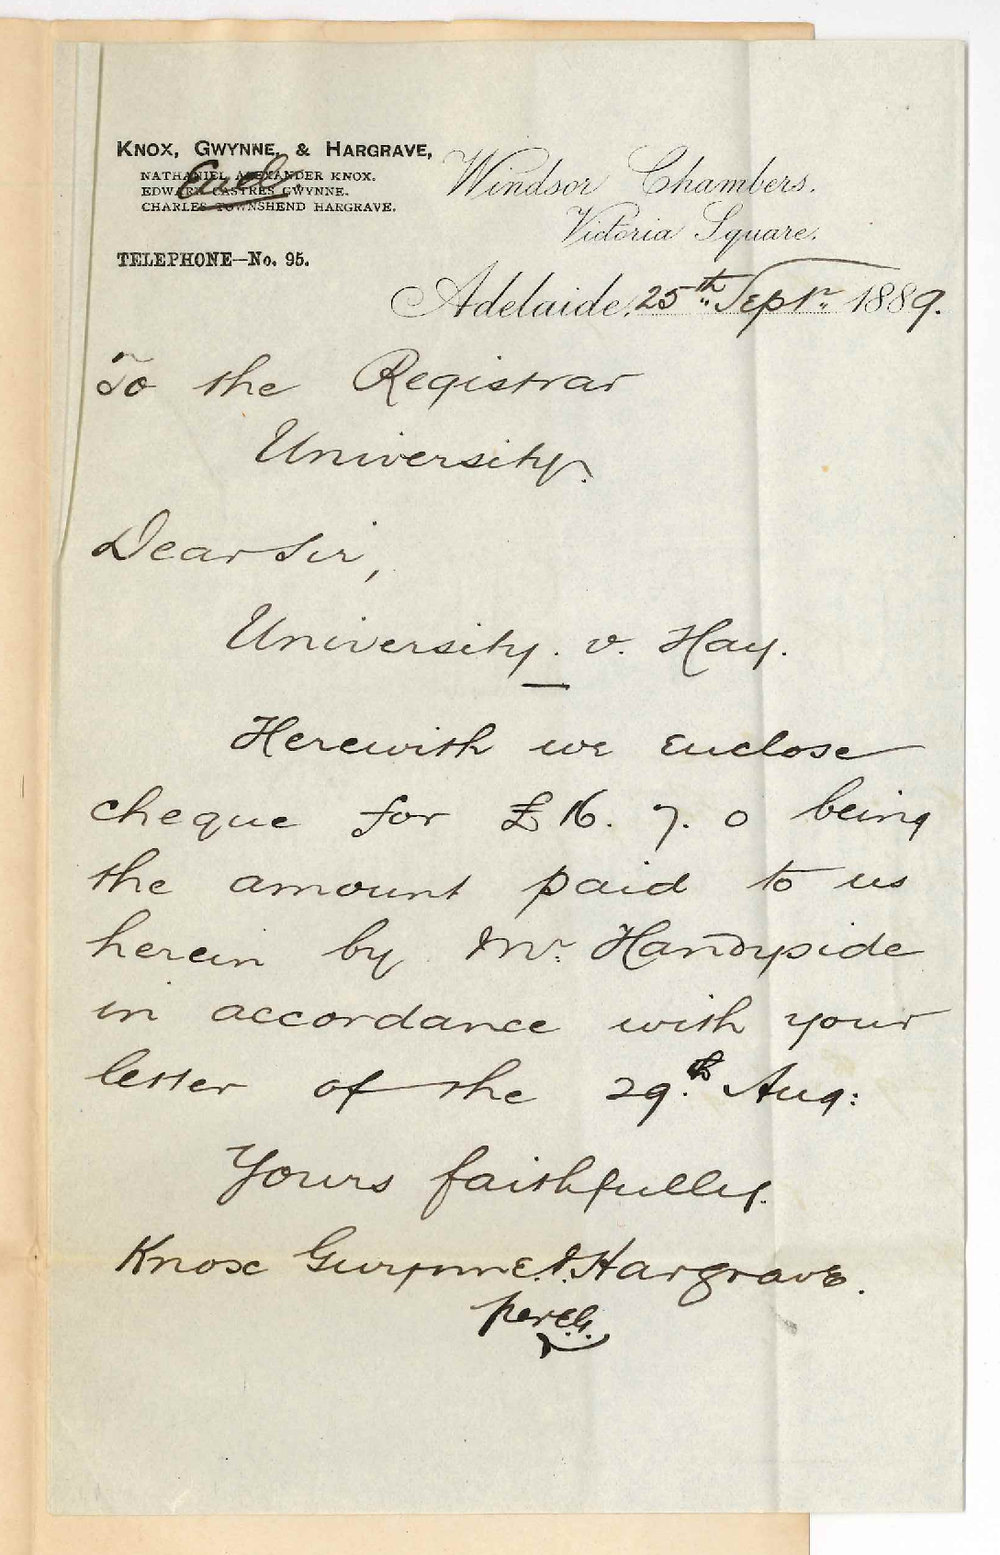 KNOX, GWYNNE, & HARGRAVE,
NATHANIEL ALEXANDER KNOX.
EDWARD CASTRES GWYNNE.
CHARLES TOWNSHEND HARGRAVE.
Encl.
TELEPHONE—No. 95.
Windsor Chambers,
Victoria Square,
Adelaide, 25th Septr 1889.
To the Registrar
University.
Dear Sir,
University v. Hay.
Herewith we enclose
cheque for £16. 7. 0 being
the amount paid to us
herein by Mr. Handyside
in accordance with your
letter of the 29th Aug:
Yours faithfully.
Knox Gwynne & Hargrave.
per E.G.